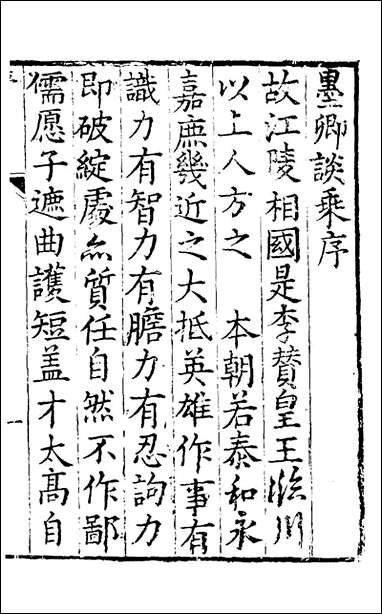 墨卿談乘序
故江陵相國是李贊皇王臨川
以上人方之　本朝若泰和永
嘉庶幾近之大抵英雄作事有
識力有智力有膽力有忍詢力
即破綻處亦質任自然不作鄙
儒愿子遮曲護短盖才太高自
一